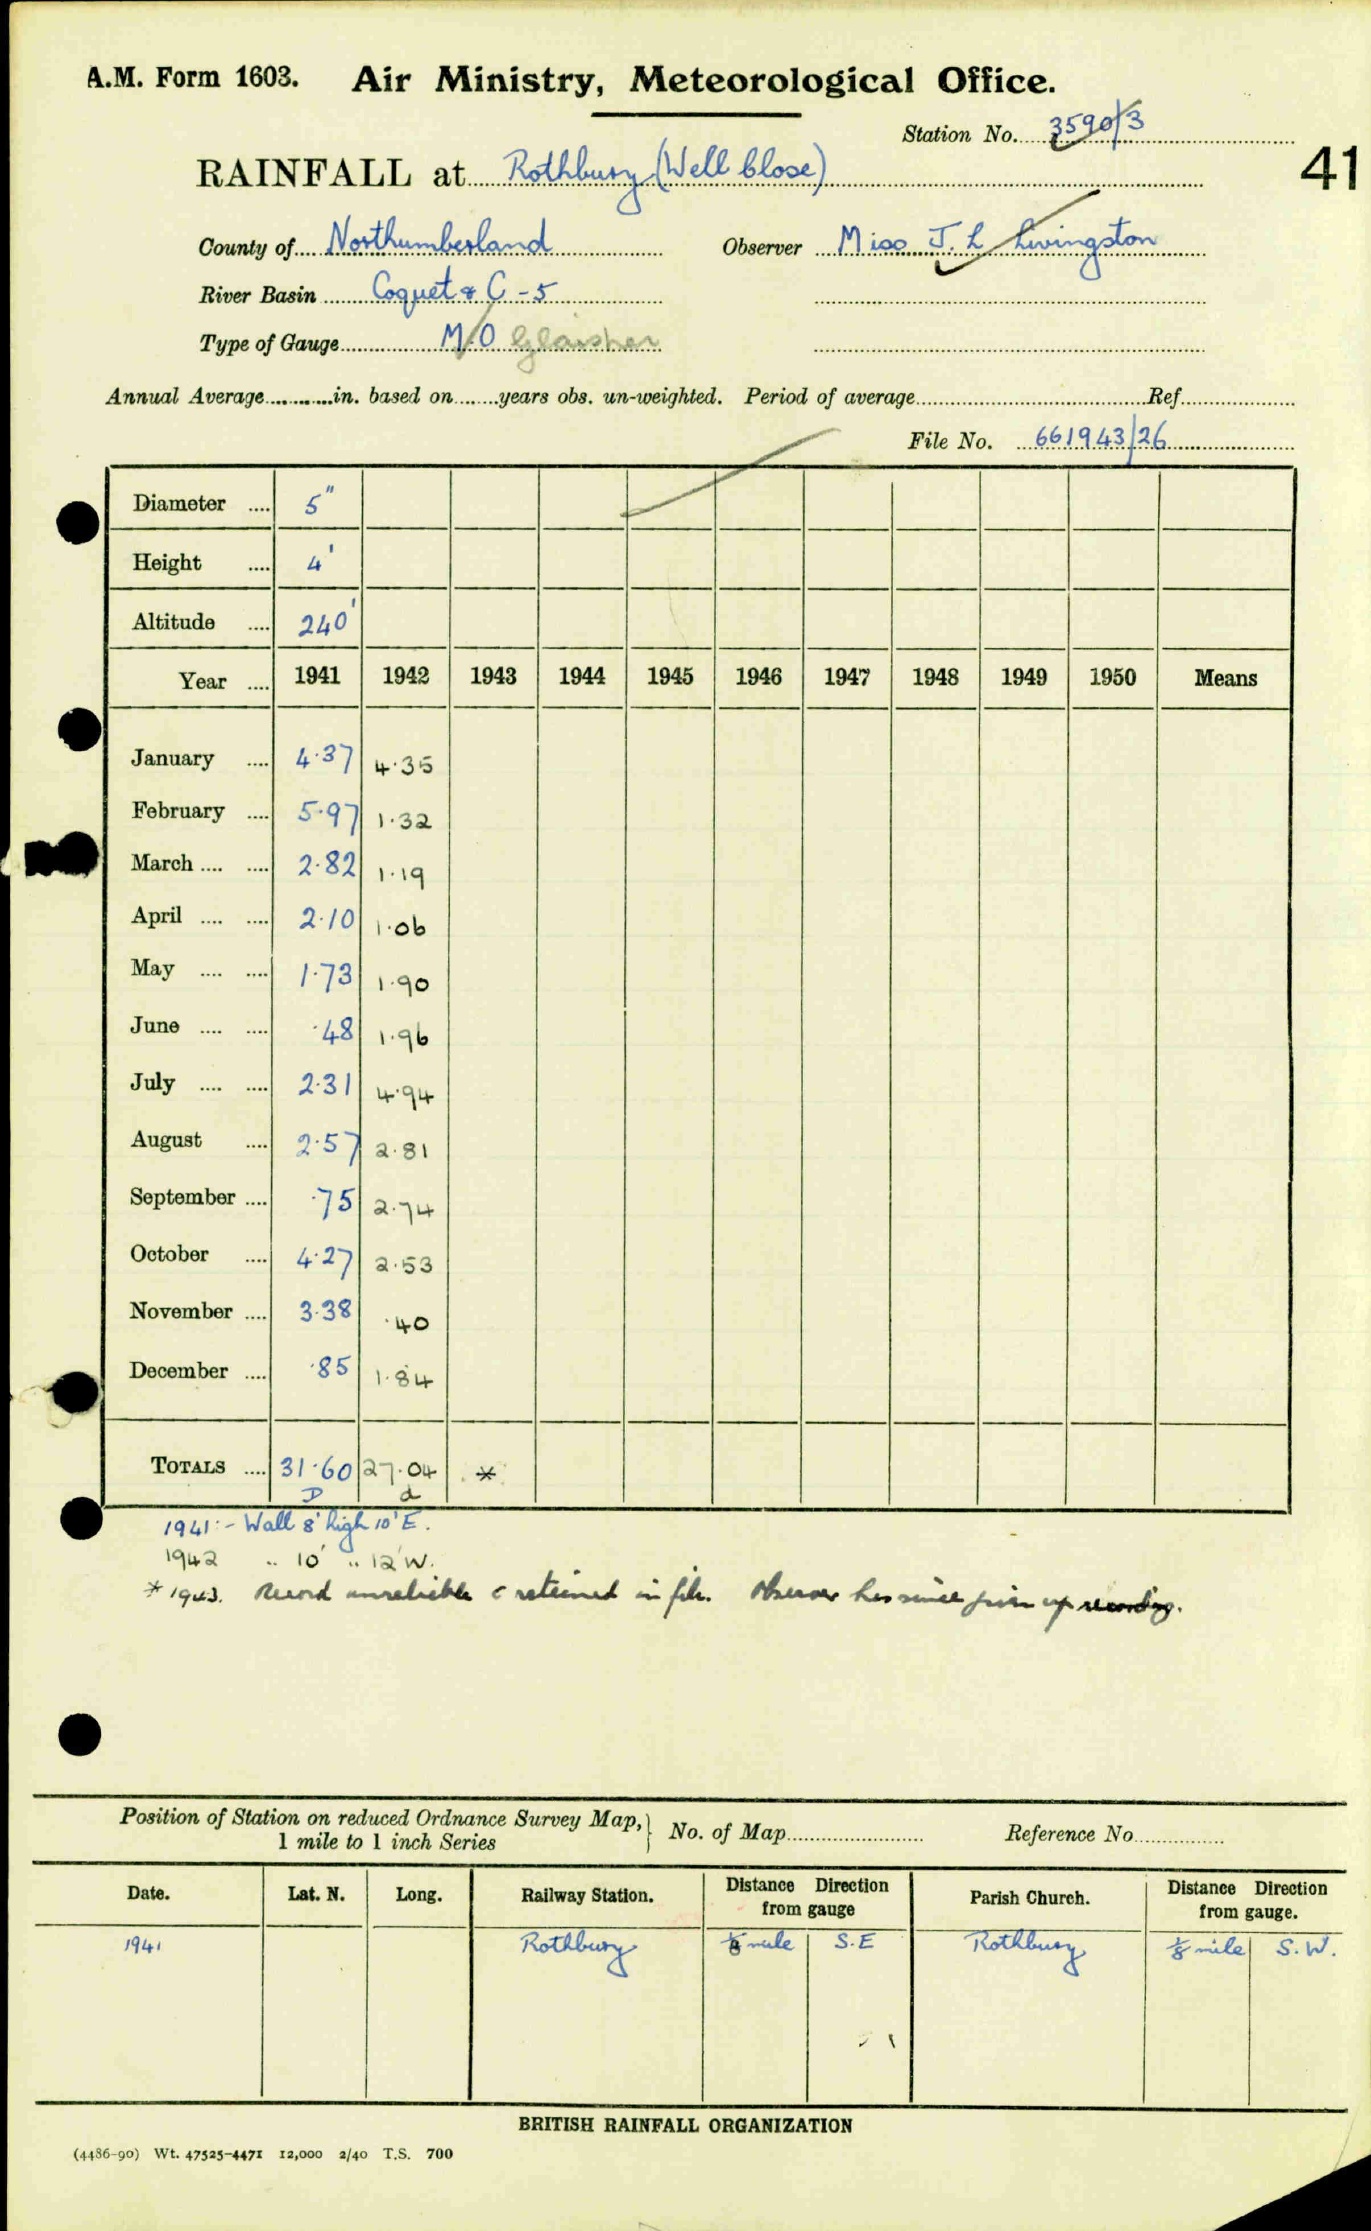 A.M. Form 1603. Air Ministry, Meteorological Office.
Station No. 3590/3
41
RAINFALL at Rothbury (Well Close)
County of Northumberland Observer Miss J. L Livingston
River Basin Coquet & C - 5
Type of Gauge M.O Glaisher
Annual Average in. based on years obs. un-weighted. Period of average Ref.
File No. 661943/26
Diameter 5"
Height 4'
Altitude 240'
Year 1941 1942 1943 1944 1945 1946 1947 1948 1949 1950 Means
January 4.37 4.35
February 5.97 1.32
March 2.82 1.19
April 2.10 1.06
May 1.73 1.90
June .48 1.96
July 2.31 4.94
August 2.57 2.81
September .75 2.74
October 4.27 2.53
November 3.38 .40
December .85 1.84
TOTALS 31.60 27.04 *
D d
1941:- Wall 8' high 10' E.
1942 " 10' " 12' W.
* 1943. Record unreliable & retained in file. Observer has since given up recording.
Position of Station on reduced Ordnance Survey Map, 1 mile to 1 inch Series } No. of Map Reference No
Date. Lat. N. Long. Railway Station. Distance Direction from gauge Parish Church. Distance Direction from gauge.
1941 Rothbury mile S.E Rothbury 1/8 mile S.W.
BRITISH RAINFALL ORGANIZATION
(4486-90) Wt. 47525-4471 12,000 2/40 T.S. 700